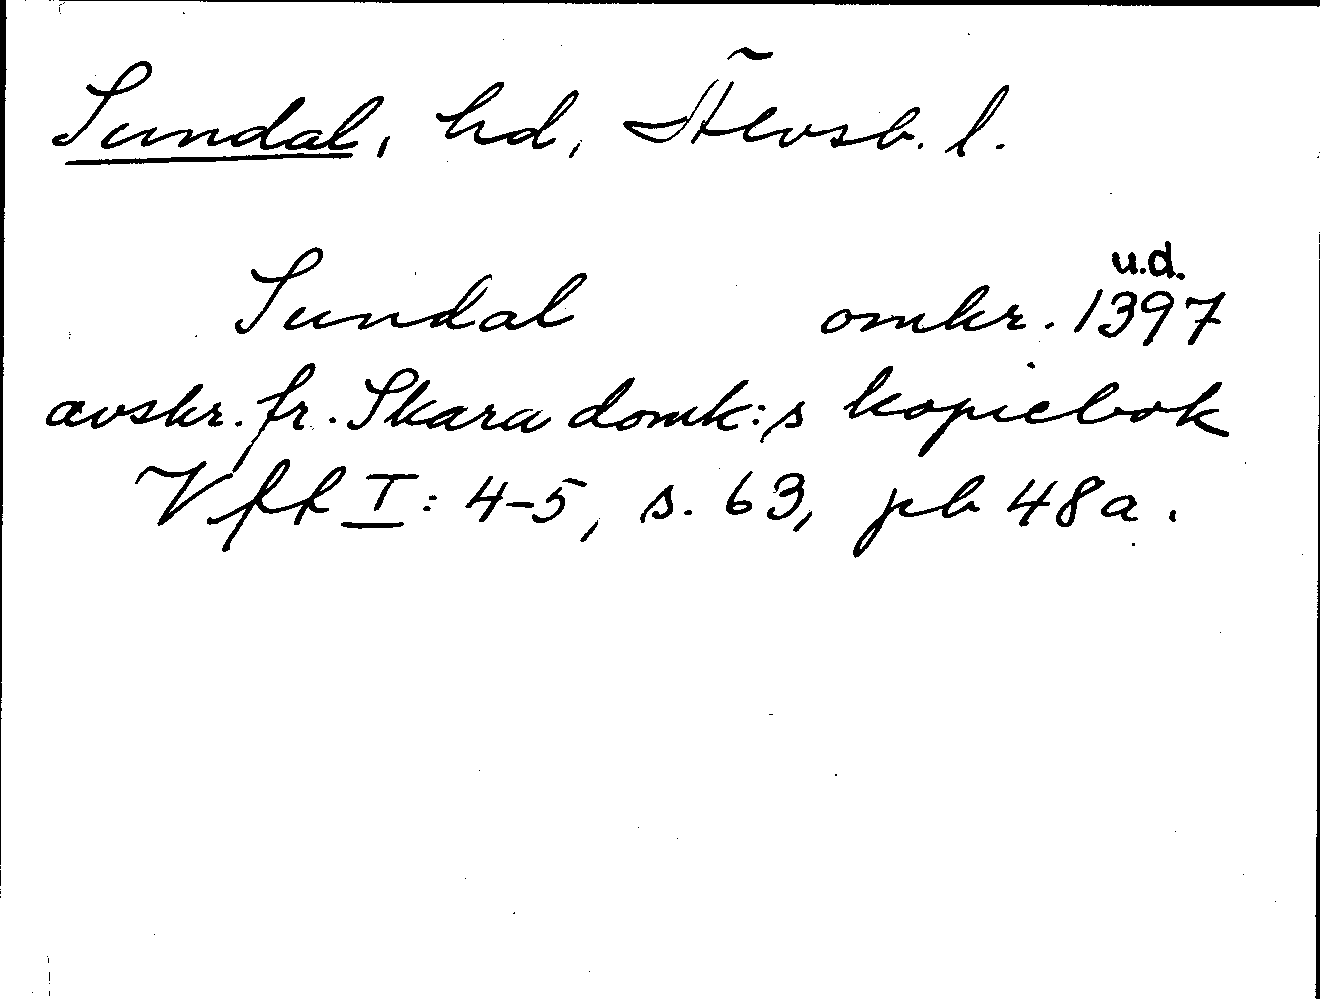 Sundal, hd, Älvsb. l.
u.d.
Sundal omkr. 1397
avskr. fr. Skara domk:s kopiebok
Vfft I: 4-5, s. 63, pb 48a.